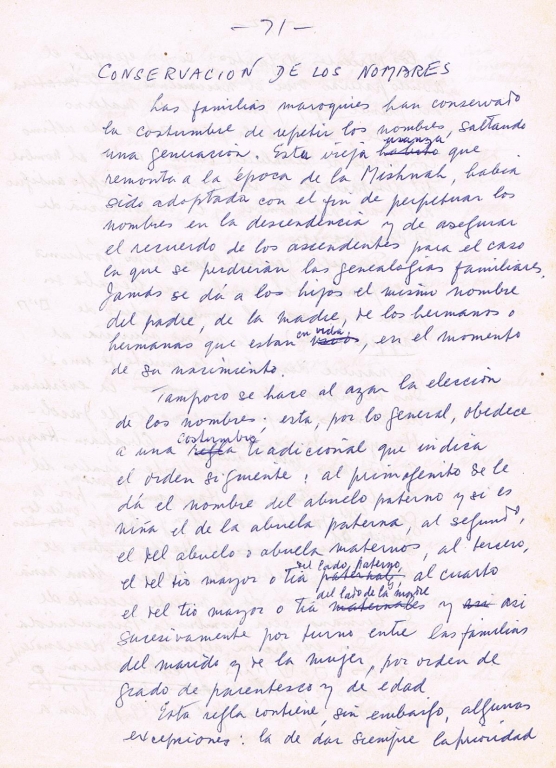 — 71 —
CONSERVACION DE LOS NOMBRES
Las familias maroquies han conservado
la costumbre de repetir los nombres, saltando
una generación. Esta vieja usanza que
remonta a la época de la Mishnah, habia
sido adoptada con el fin de perpetuar los
nombres en la descendencia y de asegurar
el recuerdo de los ascendentes para el caso
en que se perdieran las genealogias familiares.
Jamás se dá a los hijos el mismo nombre
del padre, de la madre, de los hermanos o
hermanas que estan en vida, en el momento
de su nacimiento.
Tampoco se hace al azar la elección
de los nombres; esta, por lo general, obedece
a una costumbre tradicional que indica
el orden siguiente: al primogénito se le
dá el nombre del abuelo paterno y si es
niña el de la abuela paterna, al segundo,
el del abuelo o abuela maternos, al tercero,
el del tio mayor o tia del lado paterno, al cuarto
el del tio mayor o tia del lado de la madre y asi
sucesivamente por turno entre las familias
del marido y de la mujer, por orden de
grado de parentesco y de edad
Esta regla contiene, sin embargo, algunas
excepciones: la de dar siempre la prioridad